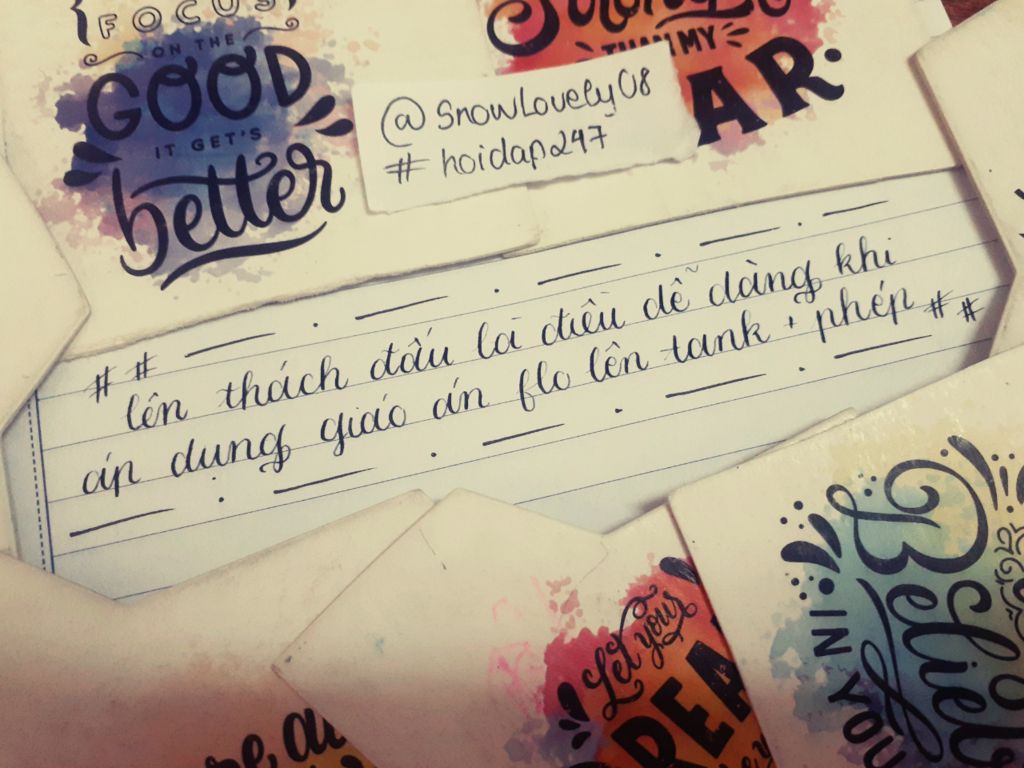 FOCUS
ON THE
GOOD
IT GET'S
better
THAN MY
@SnowLovely08
#hoidap247
##
lên thách đấu là điều dễ dàng khi
áp dụng giáo án flo lên tank + phép ##
Let your
Believe
IN YOU